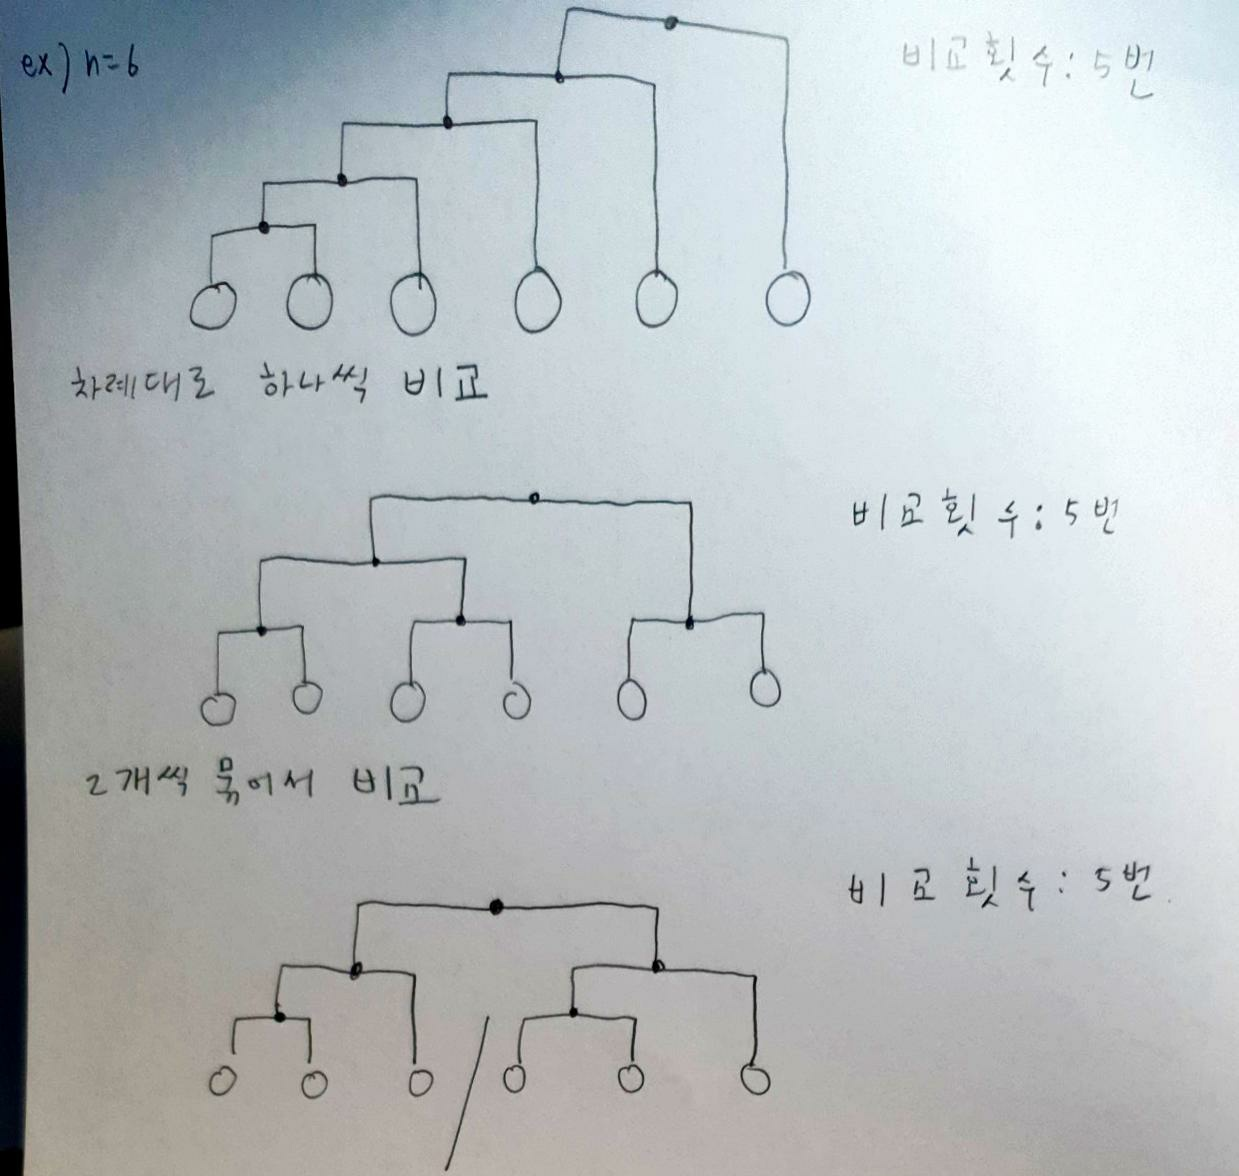 ex) n=6
비교횟수: 5번
차례대로 하나씩 비교
비교횟수: 5번
2개씩 묶어서 비교
비교횟수: 5번.